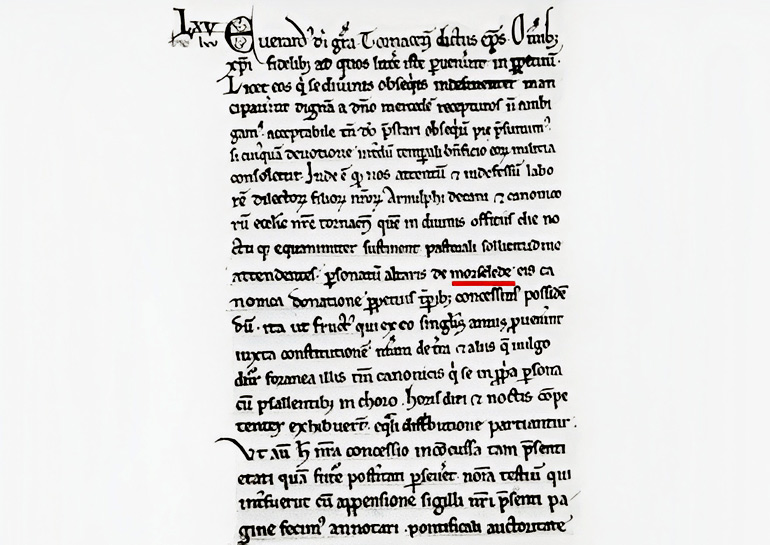 Lxv
lxv
Euerard' di gra Tornacen dictus eps Omib;
xpi fidelib; ad quos littere iste peruenerint in ppetuum.
Licet eos qi se diuinis obsequiis indesinenter man
cipauerint dignam a dno mercede recepturos n ambi
gam' acceptabile tn do pstari obsequiu
si cuiqua deuotione interdu temporali bnficio eoru militia
consoletur. Inde e q nos attentu & indefessu labo
re dilectoru filioru nroru Arnulphi decani & canonico
ru ecclie nre tornacen que in diuinis officiis die no
ctu q equanimiter sustinent pastorali sollicitudine
attendentes. personatu altaris de morselede eis ca
nonica donatione ppetuis tpib; concessim' posside
du. ita ut fruct' qui ex eo singlis annis puenerint
iuxta constitutione de tra & aliis q uulgo
dicitur foranea illis tm canonicis qi se in ppria psona
cu psallentib; in choro . horis diei & noctis cope
tenter exhibuerit. eqli distributione partiantur.
Vt au h nra concessio inconcussa tam psenti
etati qua future posteritati pseueret. nomina testiu qui
interfuerut cu appensione sigilli nri psenti pa
gine fecim' annotari . pontificali auctoritate